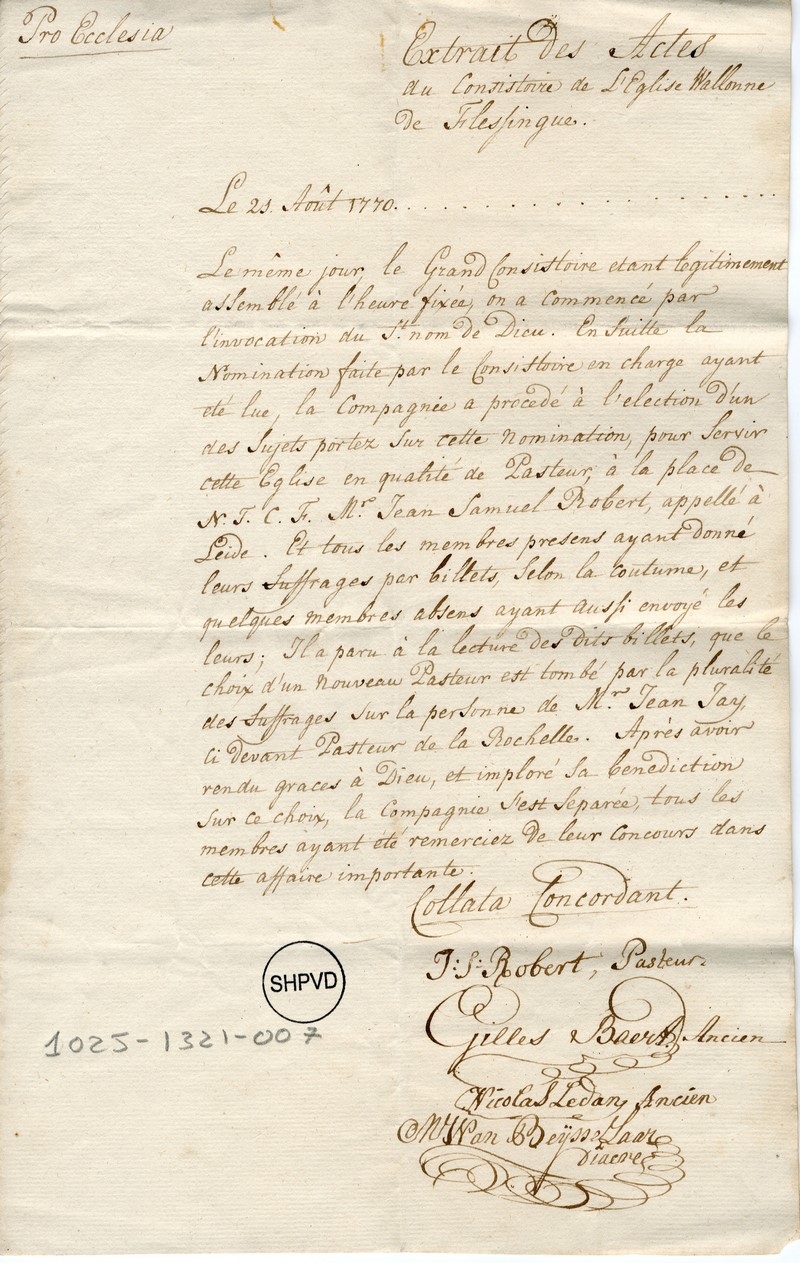 Pro Ecclesia
Extrait des Actes
du Consistoire de L'Eglise Wallonne
de Flessingue.
Le 21 Août 1770. . . . . . . . . . . . . . . . . .
Le même jour, le Grand Consistoire etant legitimement
assemblé à l'heure fixée, on a commencé par
l'invocation du St. nom de Dieu. Ensuitte la
Nomination faite par le Consistoire en charge ayant
eté lue, la Compagnie a procedé à l'election d'un
des Sujets portez sur cette Nomination, pour servir
cette Eglise en qualité de Pasteur, à la place de
N. T. C. F. Mr. Jean Samuel Robert, appellé à
Leide. Et tous les membres presens ayant donné
leurs Suffrages par billets, selon la coutume, et
quelques membres absens ayant aussi envoyé les
leurs; Il a paru à la lecture des dits billets, que le
choix d'un nouveau Pasteur est tombé par la pluralité
des Suffrages sur la personne de Mr. Jean Jay,
ci devant Pasteur de la Rochelle. Après avoir
rendu graces à Dieu, et imploré sa benediction
sur ce choix, la Compagnie s'est separée, tous les
membres ayant été remerciez de leur Concours dans
cette affaire importante.
Collata Concordant.
J: S: Robert, Pasteur.
Gilles Baert. Ancien
Nicolas Ledan, Ancien
Van Beysselaar
diacre
SHPVD
1025-1321-007